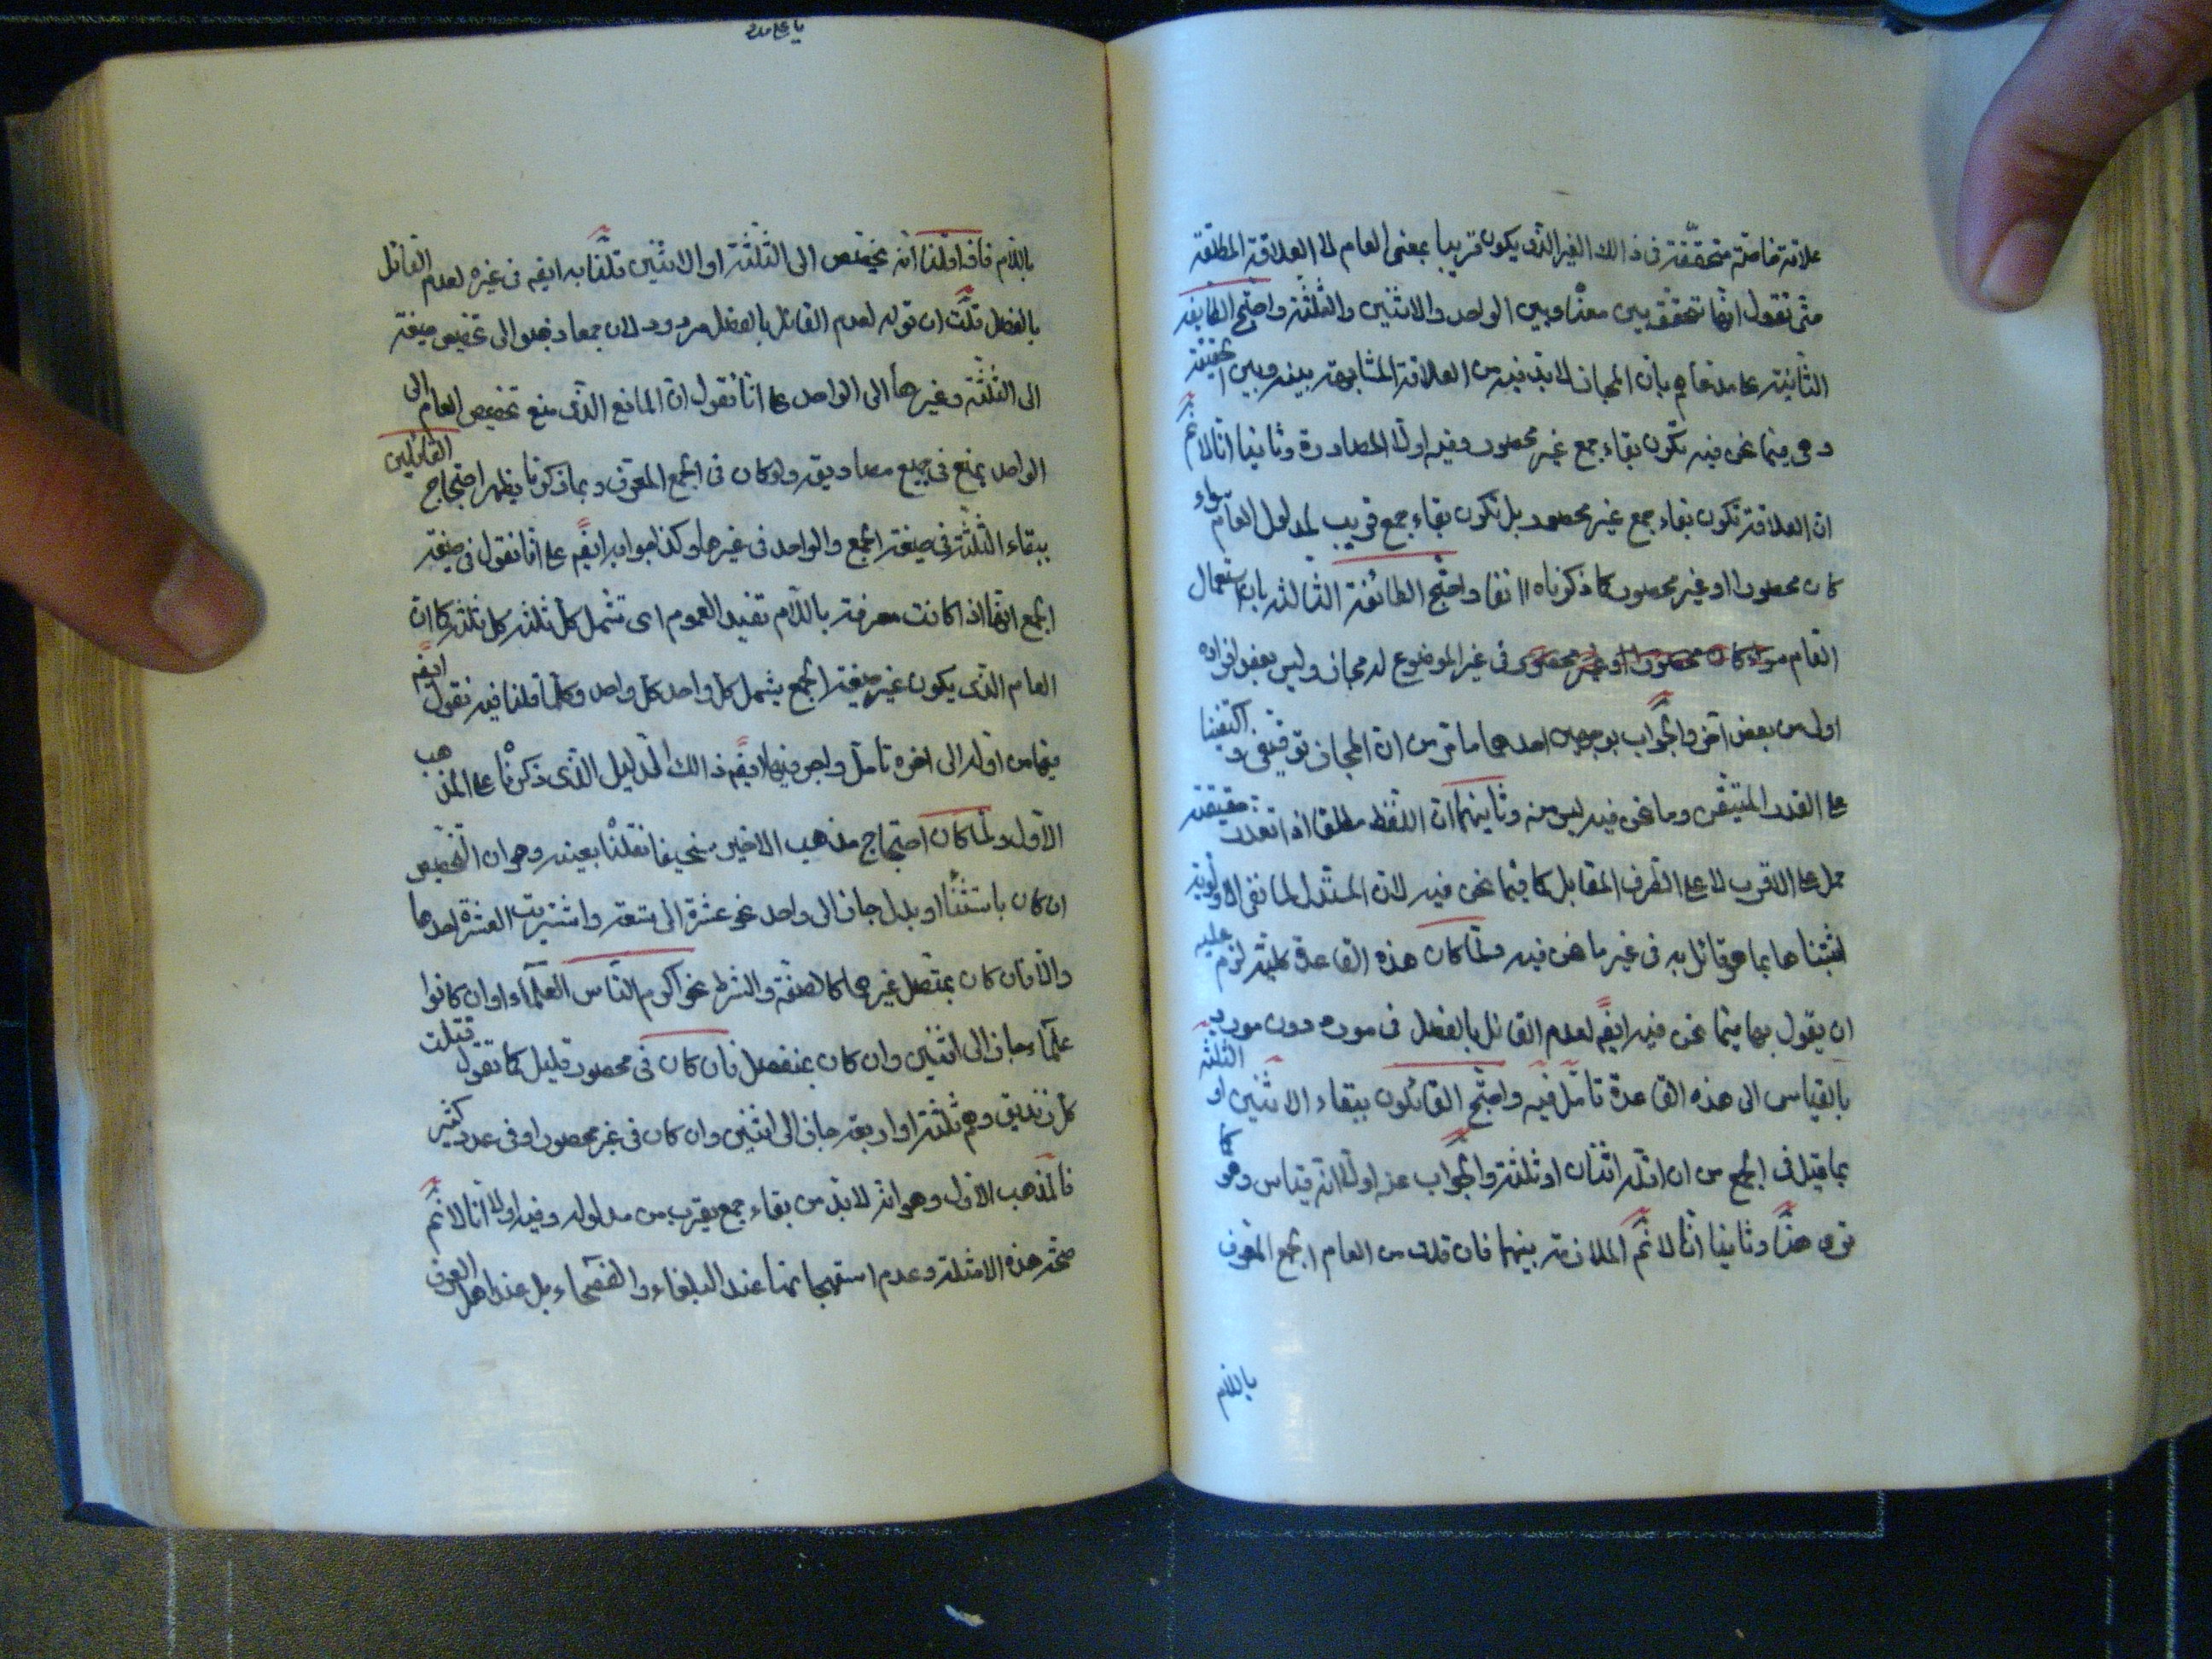 علاقة خاصة متحققة فى ذالك الغير الذى يكون قريبا بمعنى العام لا العلاقة المطلقة
حتى نقول انها تحقق بين معناه وبين الواحد والاثنين والثلثة واحتج الطايفة
الثانية على مدعاهم بان المجاز لابد فيه من العلاقة المشابهة بينه وبين الحقيقة
وهى فيما نحن فيه تكون بقاء جمع غير محصور وفيه اولا المصادرة وثانيا انا لانم
ان العلاقة تكون بقاء جمع غير محصور بل تكون بقاء جمع قريب لمدلول العام سواء
كان محصورا او غير محصور كما ذكرناه اانفا واحتج الطائفة الثالثة بان استعمال
العام سواء كان محصورا او غير محصور فى غير الموضوع له مجاز وليس بعض افراده
اولى من بعض آخر والجواب بوجهين احدهما ما مر من ان المجاز توقيفى و اكتفينا
على القدر المتيقن وما نحن فيه ليس منه وثانيهما ان اللفظ مطلقا اذا تعذرت حقيقته
حمل على الاقرب لا على الطرف المقابل كما فيما نحن فيه لان المستدل لما نفى الاولوية
اثبتناها بما هو قائل به فى غير ما نحن فيه ولما كان هذه القاعدة كلية لزم عليه
ان يقول بها فيما نحن فيه ايضً لعدم القائل بالفصل فى مورد دون مورد
بالقياس الى هذه القاعدة تامّل فيه واحتج القائلون ببقاء الاثنين او الثلثة
بما قيل فى الجمع من ان اقله اثنان او ثلثة والجواب عنه اولا انه قياس وهو كما
ترى هنا وثانيا انا لانم الملازمة بينهما فان قلت من العام الجمع المعرف
باللام
يا على مدد
باللام فاذا قلنا انه يختص الى الثلثة او الاثنين قلنا به ايضً فى غيره لعدم القائل
بالفصل قلت ان قوله لعدم القائل بالفصل مردود لان جمعا ذهبوا الى تخصيص صيغة
الى الثلثة وغيرها الى الواحد على انا نقول ان المانع الذى منع تخصيص العام الى
الواحد يمنع فى جميع مصاديقه ولو كان فى الجمع المعرف وبما ذكرنا يظهر احتجاج القائلين
ببقاء الثلثة فى صيغة الجمع والواحد فى غيرها وكذا جوابه ايضً على انا نقول فى صيغة
الجمع انها اذا كانت معرفة باللام تفيد العموم اى تشمل كل ثلثة كل ثلثة كما ان
العام الذى يكون غير صيغة الجمع يشمل كل واحد كل واحد وكلما قلنا فيه نقول ايضً
فيها من اوله الى اخره تامل واجر فيها ايضً ذالك الدليل الذى ذكرنا على المذهب
الاول ولما كان احتجاج مذهب الاخير سخيفا نقلنا بعينه وهو ان التخصيص
ان كان باستثناء او بدل جاز الى واحد نحو عشرة الى تسعة واشتريت العشرة احدها
والا فان كان بمتصل غيرهما كالصفة والشرط نحو اكرم الناس العلمآء او ان كانوا
علمآء جاز الى اثنين وان كان بمنفصل فان كان فى محصور قليل كما تقول قتلت
كل زنديق وهم ثلثة او اربعة جاز الى اثنين وان كان فى غير محصور او فى عدد كثير
فالمذهب الاول وهو انه لابد من بقاء جمع يقرب من مدلوله وفيه اولا انا لانم
صحة هذه الامثلة وعدم استهجانها عند البلغاء والفصحاء بل عند اهل العرف